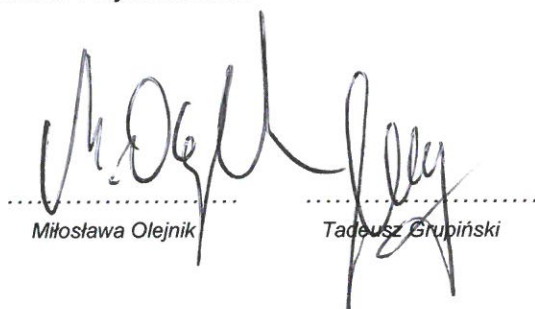 M. Olejnik
.......................................... ..........................................
Miłosława Olejnik Tadeusz Grupiński